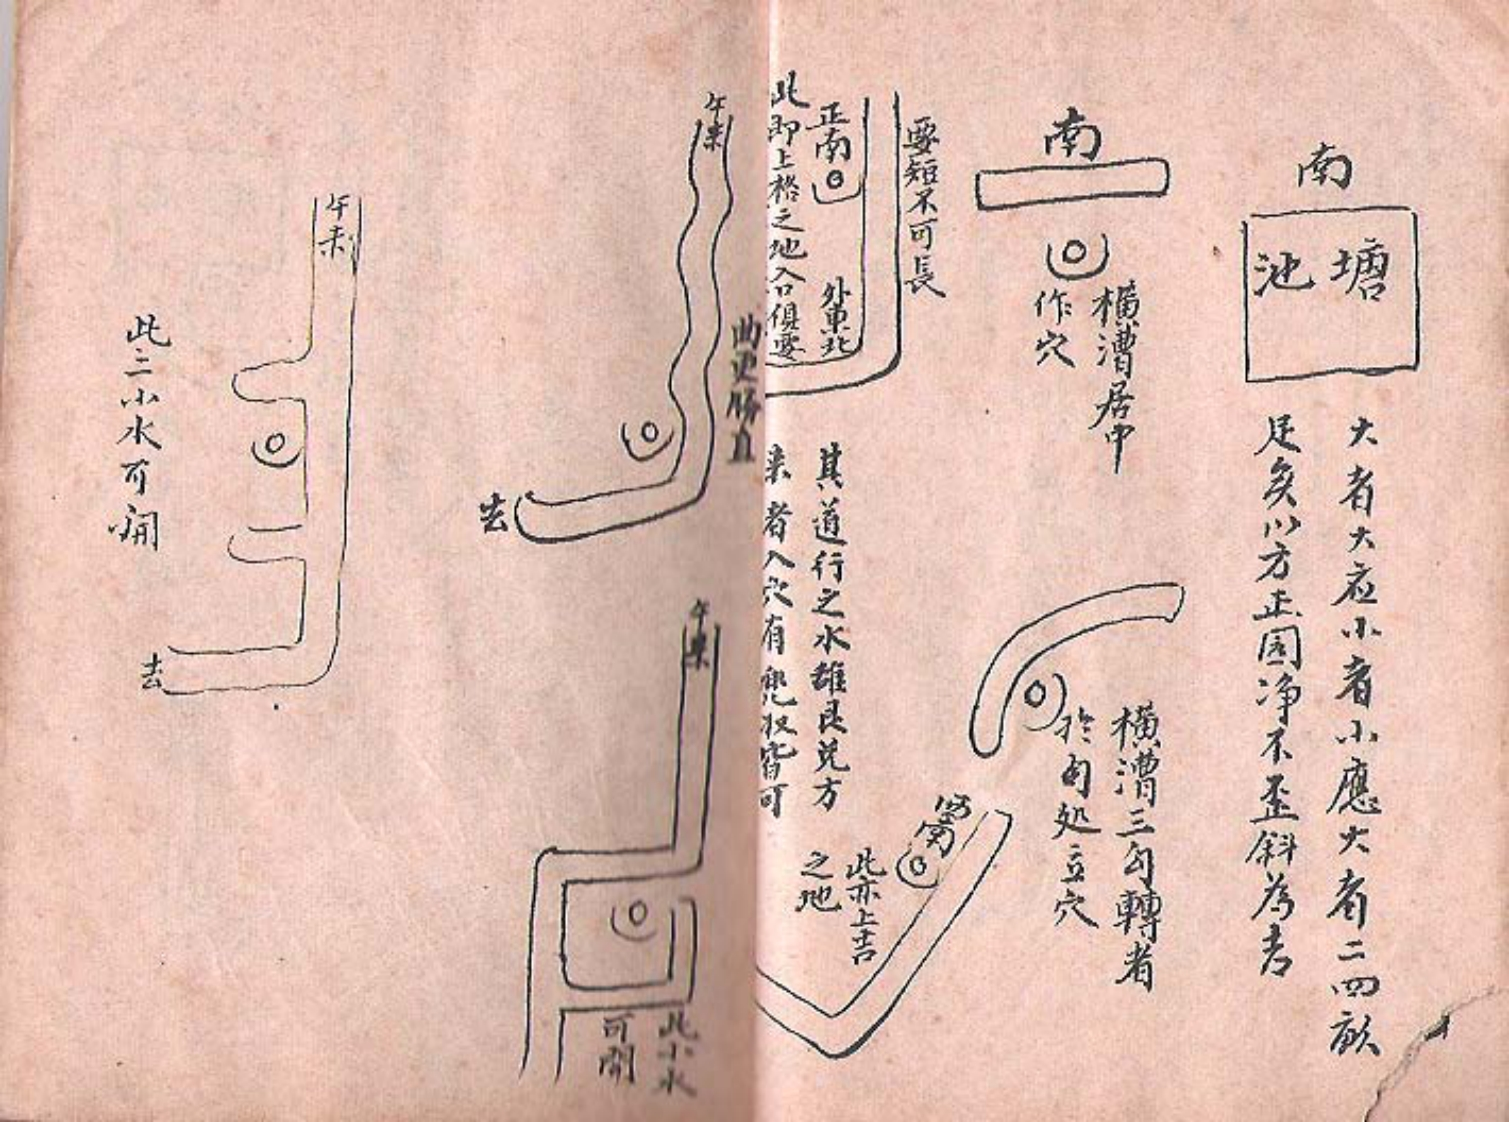 南
塘
池
大者大应小者小應大者二四畝
足矣以方正圆净不歪斜為吉
南
橫漕居中
作穴
橫漕三勾轉者
於勾処立穴
要短不可長
正南
外東北
此即上格之地入口俱要
其道行之水雖艮兑方
来者入穴有
皆可
西南
此亦上吉
之地
曲更勝直
午来
去
午来
此小水
可開
午来
去
此二小水可開